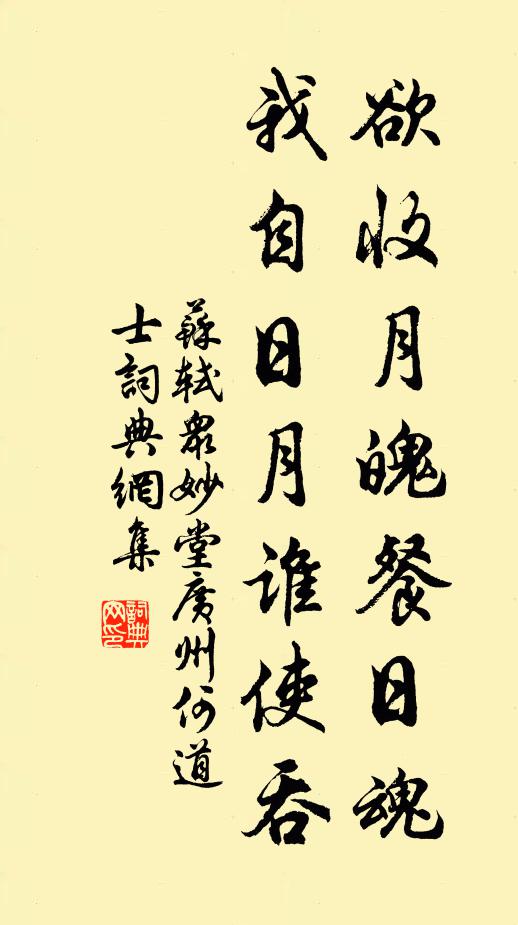 欲收月魄餐日魂
我自日月誰使吞
蘇軾衆妙堂廣州何道
士詞典網集
詞典网印